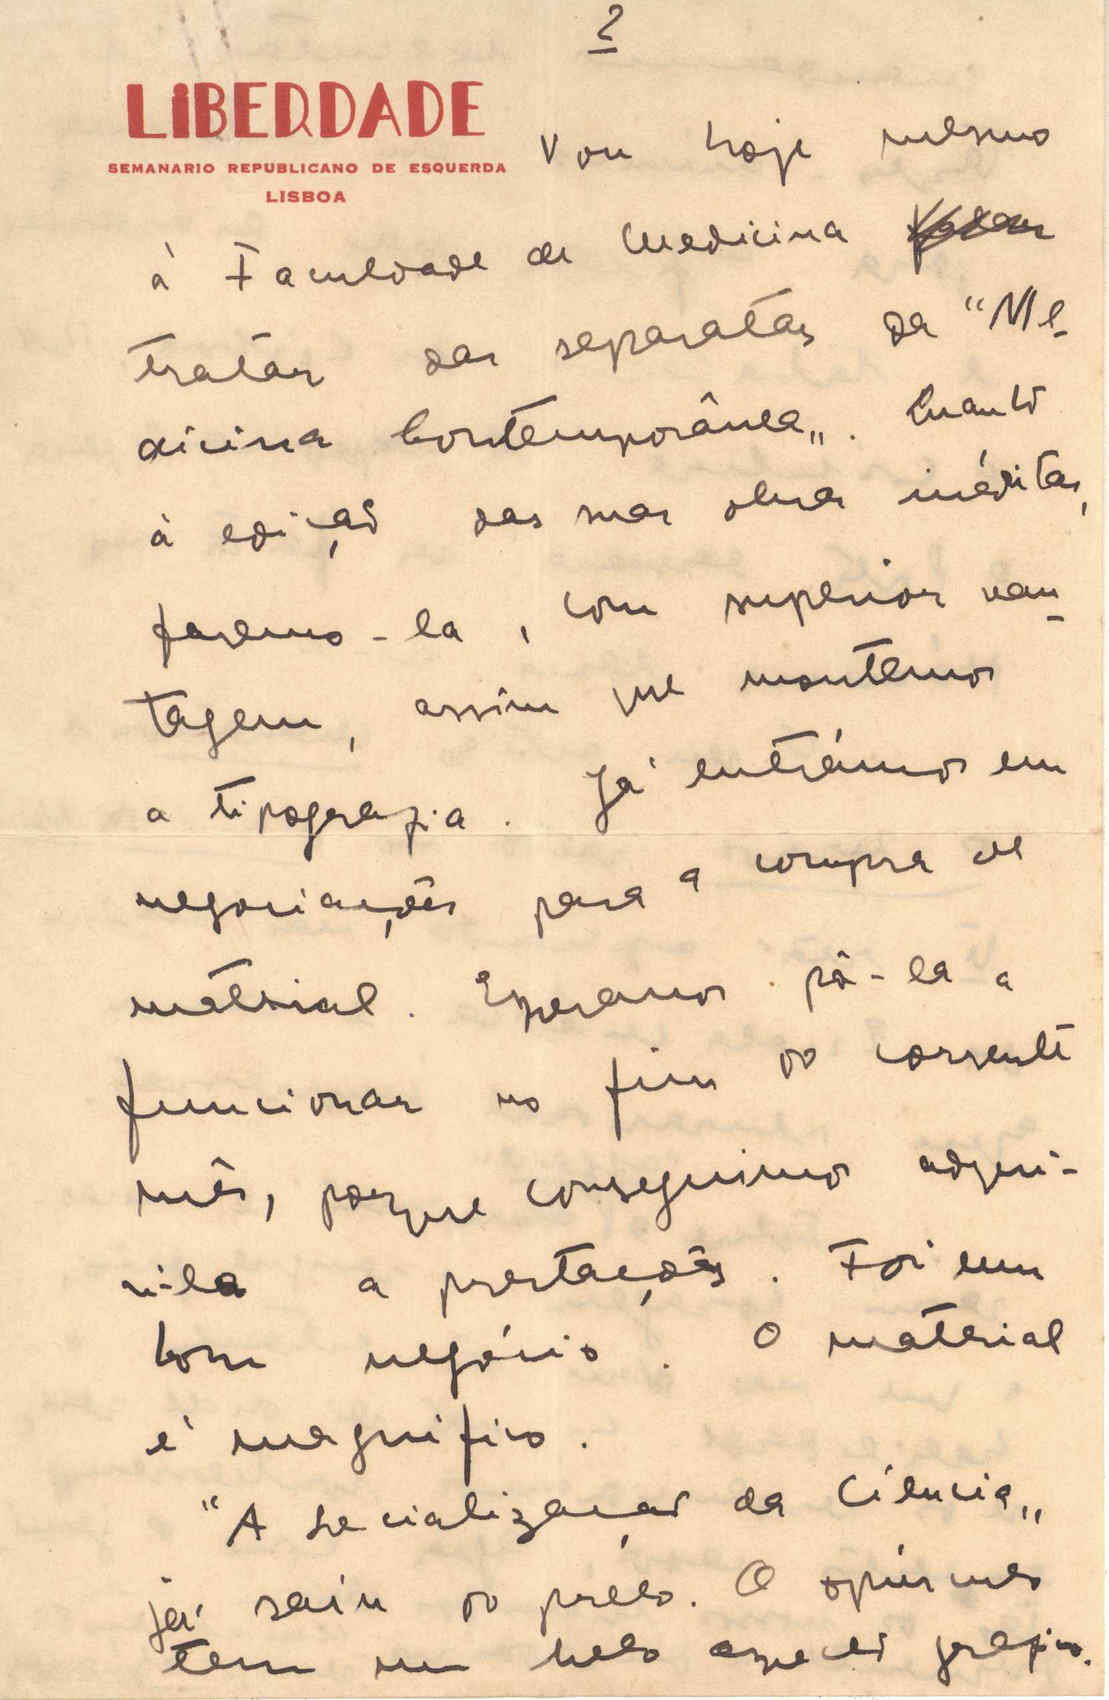 2
LIBERDADE
SEMANARIO REPUBLICANO DE ESQUERDA
LISBOA
Vou hoje mesmo
à Faculdade de Medicina
tratar das separatas da "Me-
dicina Contemporânea„. Quanto
à edição das suas obras inéditas,
faremo-la, com superior van-
tagem, assim que montemos
a tipografia. Já entrámos em
negociações para a compra de
material. Esperamos pô-la a
funcionar no fim do corrente
mês, porque conseguimos adqui-
ri-la a prestações. Foi um
bom negócio. O material
é magnífico.
"A socialização da Ciência„
já saiu do prelo. O opúsculo
tem um belo aspecto gráfico.